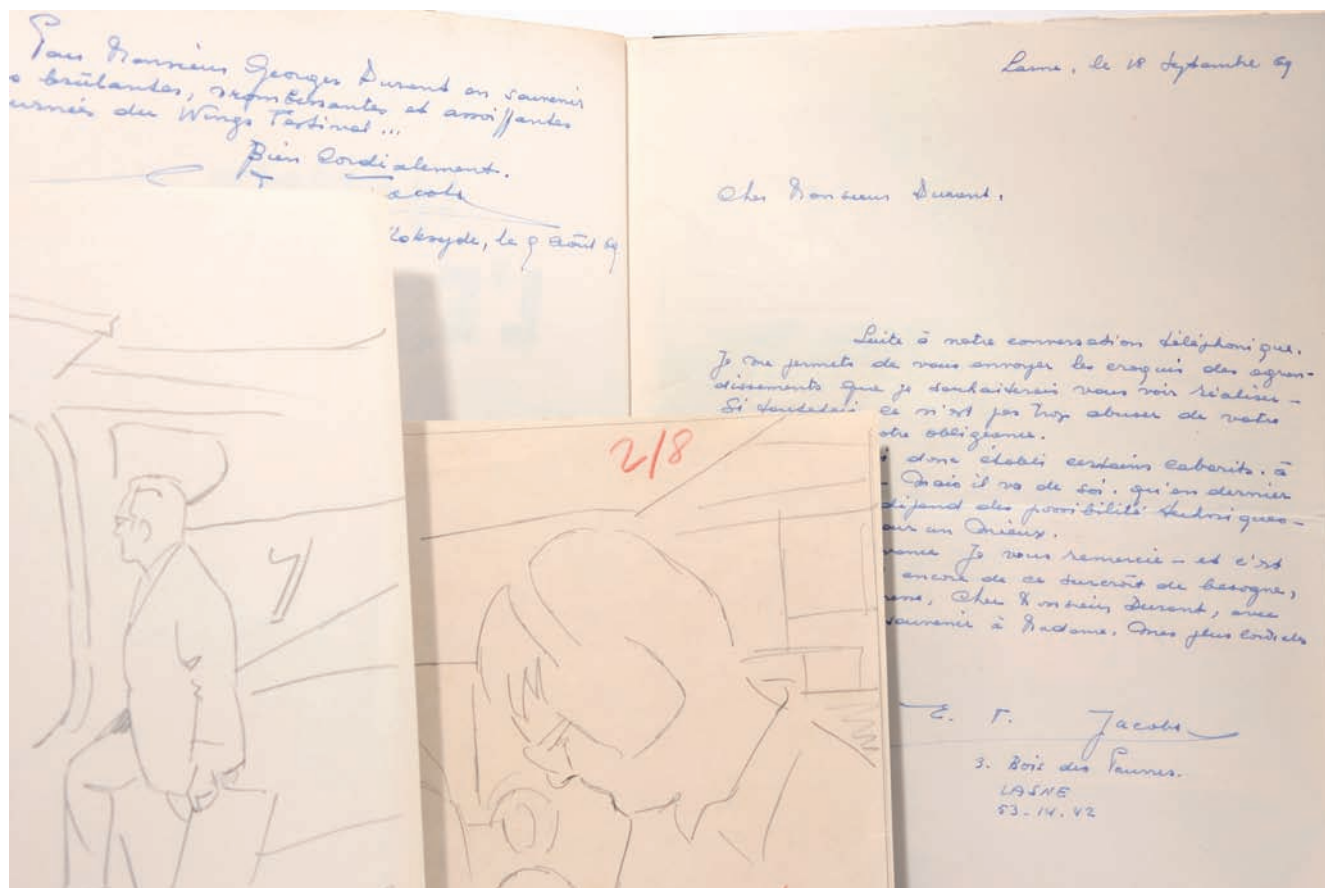 Pour Monsieur Georges Durant en souvenir
brûlantes, vrombissantes et assoiffantes
urnées du Wings Festival...
Bien Cordialement.
Jacobs
Koksyde, le 9 Août 69
Lasne, le 18 Septembre 69
Cher Monsieur Durant.
Suite à notre conversation téléphonique.
Je me permets de vous envoyer les croquis des agran-
dissements que je souhaiterais vous voir réaliser -
Si toutefois ce n'est pas trop abuser de votre
otre obligeance.
donc établi certains gabarits. à
- Mais il va de soi. qu'en dernier
dépend des possibilité techniques -
un mieux.
vance Je vous remercie - et c'est
encore de ce surcroît de besogne,
Cher Monsieur Durant, avec
souvenir à Madame. Mes plus cordials
E. P. Jacobs
3. Bois des Pauvres.
LASNE
53-14-42
2/8